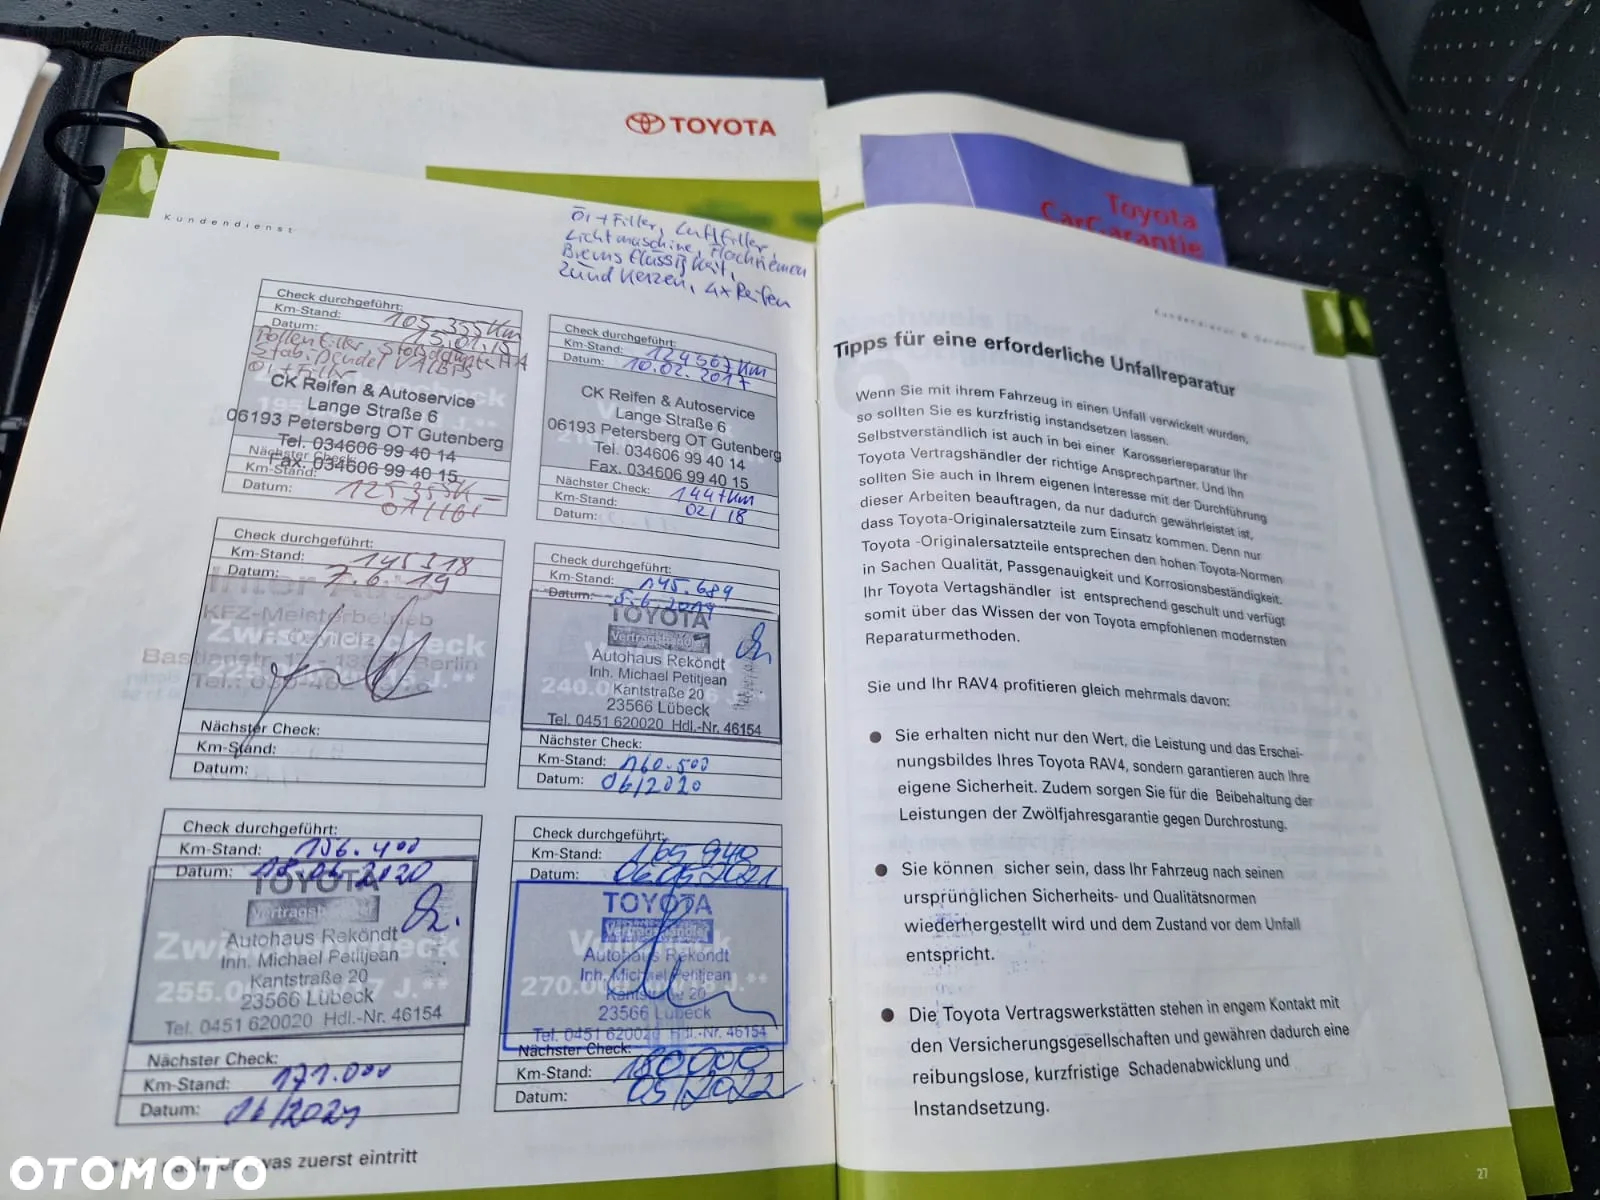 TOYOTA
Toyota
CarGarantie
Kundendienst
Öl + Filter, Luftfilter,
Lichtmaschine, Flachriemen
Bremsflüssigkeit,
Zündkerzen, 4x Reifen
Check durchgeführt:
Km-Stand: 105.355 Km
Datum: 15.01.15
Pollenfilter, Stoßdämpfer HA
Stabi. Pendel VA
Öl + Filter
CK Reifen & Autoservice
Lange Straße 6
06193 Petersberg OT Gutenberg
Tel. 034606 99 40 14
Fax. 034606 99 40 15
Nächster Check:
Km-Stand:
Datum:
Check durchgeführt:
Km-Stand: 124567 Km
Datum: 10.02.2017
CK Reifen & Autoservice
Lange Straße 6
06193 Petersberg OT Gutenberg
Tel. 034606 99 40 14
Fax. 034606 99 40 15
Nächster Check:
Km-Stand: 144 tkm
Datum: 02/18
Check durchgeführt:
Km-Stand: 145318
Datum: 7.6.19
KFZ-Meisterbetrieb
Zwischencheck
Nächster Check:
Km-Stand:
Datum:
Check durchgeführt:
Km-Stand: 145.689
Datum: 5.6.2019
TOYOTA
Vertragshändler
Autohaus Reköndt
Inh. Michael Petitjean
Kantstraße 20
23566 Lübeck
Tel. 0451 620020 Hdl.-Nr. 46154
Nächster Check:
Km-Stand: 160.500
Datum: 06/2020
Check durchgeführt:
Km-Stand: 156.400
Datum: 18.06.2020
TOYOTA
Vertragshändler
Autohaus Reköndt
Inh. Michael Petitjean
Kantstraße 20
23566 Lübeck
Tel. 0451 620020 Hdl.-Nr. 46154
Nächster Check:
Km-Stand: 171.000
Datum: 06/2021
Check durchgeführt:
Km-Stand: 165 940
Datum: 06.05.2021
TOYOTA
Vertragshändler
Autohaus Reköndt
Inh. Michael Petitjean
Kantstraße 20
23566 Lübeck
Tel. 0451 620020 Hdl.-Nr. 46154
Nächster Check:
Km-Stand: 180000
Datum: 05/2022
was zuerst eintritt
Kundendienst & Garantie
Tipps für eine erforderliche Unfallreparatur
Wenn Sie mit ihrem Fahrzeug in einen Unfall verwickelt wurden,
so sollten Sie es kurzfristig instandsetzen lassen.
Selbstverständlich ist auch in bei einer Karosseriereparatur Ihr
Toyota Vertragshändler der richtige Ansprechpartner. Und Ihn
sollten Sie auch in Ihrem eigenen Interesse mit der Durchführung
dieser Arbeiten beauftragen, da nur dadurch gewährleistet ist,
dass Toyota-Originalersatzteile zum Einsatz kommen. Denn nur
Toyota -Originalersatzteile entsprechen den hohen Toyota-Normen
in Sachen Qualität, Passgenauigkeit und Korrosionsbeständigkeit.
Ihr Toyota Vertagshändler ist entsprechend geschult und verfügt
somit über das Wissen der von Toyota empfohlenen modernsten
Reparaturmethoden.
Sie und Ihr RAV4 profitieren gleich mehrmals davon:
● Sie erhalten nicht nur den Wert, die Leistung und das Erschei-
nungsbildes Ihres Toyota RAV4, sondern garantieren auch Ihre
eigene Sicherheit. Zudem sorgen Sie für die Beibehaltung der
Leistungen der Zwölfjahresgarantie gegen Durchrostung.
● Sie können sicher sein, dass Ihr Fahrzeug nach seinen
ursprünglichen Sicherheits- und Qualitätsnormen
wiederhergestellt wird und dem Zustand vor dem Unfall
entspricht.
● Die Toyota Vertragswerkstätten stehen in engem Kontakt mit
den Versicherungsgesellschaften und gewähren dadurch eine
reibungslose, kurzfristige Schadenabwicklung und
Instandsetzung.
27
OTOMOTO